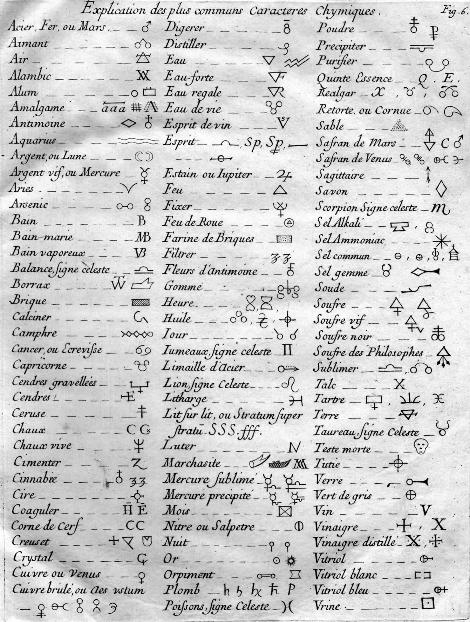 Explication des plus communs Caracteres Chymiques. Fig. 6.
Acier, Fer, ou Mars
Aimant
Air
Alambic
Alum
Amalgame aaa
Antimoine
Aquarius
Argent, ou Lune
Argent vif, ou Mercure
Aries
Arsenic
Bain B
Bain-marie MB
Bain vaporeux VB
Balance, signe celeste
Borrax
Brique
Calciner
Camphre
Cancer, ou Ecrevisse
Capricorne
Cendres gravellées
Cendres
Ceruse
Chaux
Chaux vive
Cimenter
Cinnabre
Cire
Coaguler
Corne de Cerf CC
Creuset
Crystal
Cuivre ou Venus
Cuivre brulé, ou Aes ustum
Digerer
Distiller
Eau
Eau-forte
Eau regale
Eau de vie
Esprit de vin
Esprit Sp, Sp,
Estain ou Iupiter
Feu
Fixer
Feu de Roue
Farine de Briques
Filtrer
Fleurs d'Antimoine
Gomme
Heure
Huile
Iour
Iumeaux, signe celeste
Limaille d'Acier
Lion, signe Celeste
Litharge
Lit sur lit, ou Stratum super
stratū SSS. ſſſ.
Luter
Marchasite
Mercure sublimé
Mercure precipité
Mois
Nitre ou Salpetre
Nuit
Or
Orpiment
Plomb
Poissons, signe Celeste
Poudre
Precipiter
Purifier
Quinte Essence Q. E.
Realgar
Retorte, ou Cornue
Sable
Safran de Mars
Safran de Venus
Sagittaire
Savon
Scorpion Signe celeste
Sel Alkali
Sel Ammoniac
Sel commun
Sel gemme
Soude
Soufre
Soufre vif
Soufre noir
Soufre des Philosophes
Sublimer
Talc X
Tartre
Terre
Taureau, Signe Celeste
Teste morte
Tutie
Verre
Vert de gris
Vin V
Vinaigre
Vinaigre distillé
Vitriol
Vitriol blanc
Vitriol bleu
Vrine